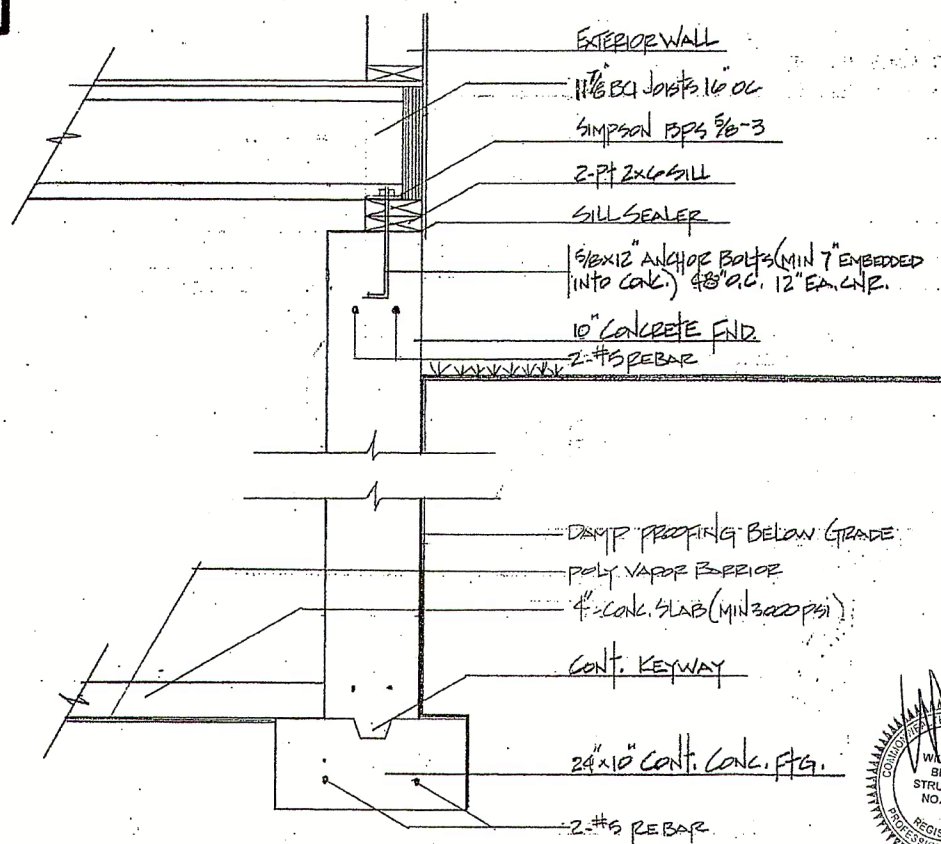 EXTERIOR WALL
11 7/8" BCI JOISTS 16" OC
SIMPSON BPS 5/8-3
2-PT 2x6 SILL
SILL SEALER
5/8x12" ANCHOR BOLTS (MIN 7" EMBEDDED
INTO CONC.) 48" O.C. 12" EA. CNR.
10" CONCRETE FND.
2-#5 REBAR
DAMP PROOFING BELOW GRADE
POLY VAPOR BARRIOR
4" CONC. SLAB (MIN 3000 PSI)
CONT. KEYWAY
24"x10" CONT. CONC. FTG.
2-#5 REBAR
NO.